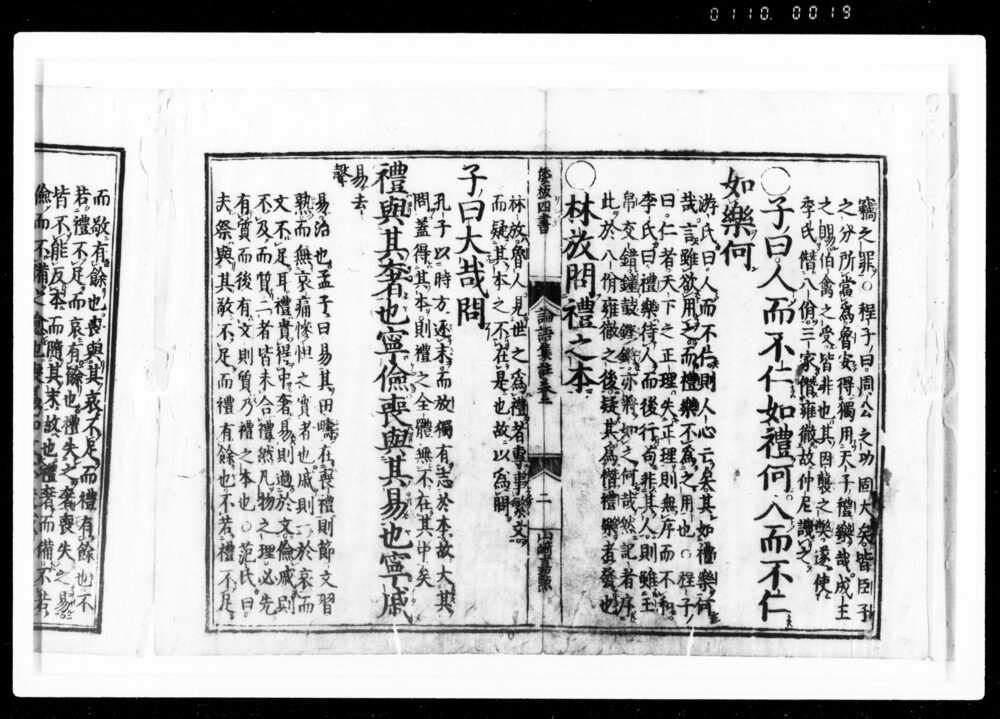 0110. 0019
竊之罪○程子曰周公之功固大矣皆臣子
之分所當爲魯安得獨用天子禮樂哉成王
之賜伯禽之受皆非也其因襲之弊遂使
李氏僭八佾三家僭雍徹故仲尼譏之
○子曰人而不仁如禮何人而不仁
如樂何
游氏曰人而不仁則人心亡矣其如禮樂何
哉言雖欲用之而禮樂不爲之用也○程子
曰仁者天下之正理失正理則無序而不和
李氏曰禮樂待人而後行苟非其人則雖玉
帛交錯鐘鼓鏗鏘亦將如之何哉然記者序
此於八佾雍徹之後疑其爲僭禮樂者發也
○林放問禮之本
林放魯人見世之爲禮者專事繁文
而疑其本之不在是也故以爲問
子曰大哉問
孔子以時方逐末而放獨有志於本故大其
問蓋得其本則禮之全體無不在其中矣
禮與其奢也寧儉喪與其易也寧戚
易去
聲
易治也孟子曰易其田疇在喪禮則節文習
熟而無哀痛慘怛之實者也戚則一於哀而
文不足耳禮貴得中奢易則過於文儉戚則
不及而質二者皆未合禮然凡物之理必先
有質而後有文則質乃禮之本也○范氏曰
夫祭與其敬不足而禮有餘也不若禮不足
而敬有餘也喪與其哀不足而禮有餘也不
若禮不足而哀有餘也禮失之奢喪失之易
皆不能反本而隨其末故也禮奢而備不若
儉而不備之愈也
四書
論語集註卷二
二
山崎嘉點